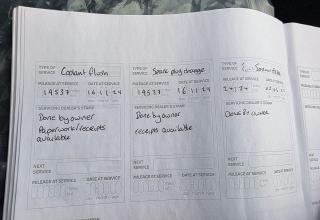 TYPE OF SERVICE Coolant flush
MILEAGE AT SERVICE DATE AT SERVICE
19537 16.11.24
SERVICING DEALER'S STAMP
Done by owner
Paperwork/receipts
available
NEXT SERVICE
MILEAGE AT SERVICE DATE AT SERVICE
TYPE OF SERVICE Spark plug change
MILEAGE AT SERVICE DATE AT SERVICE
19537 16.11.24
SERVICING DEALER'S STAMP
Done by owner
receipts available
NEXT SERVICE
MILEAGE AT SERVICE DATE AT SERVICE
TYPE OF SERVICE
MILEAGE AT SERVICE DATE AT SERVICE
SERVICING DEALER'S STAMP
Done by owner
NEXT SERVICE
MILEAGE AT SERVICE DATE AT SERVICE